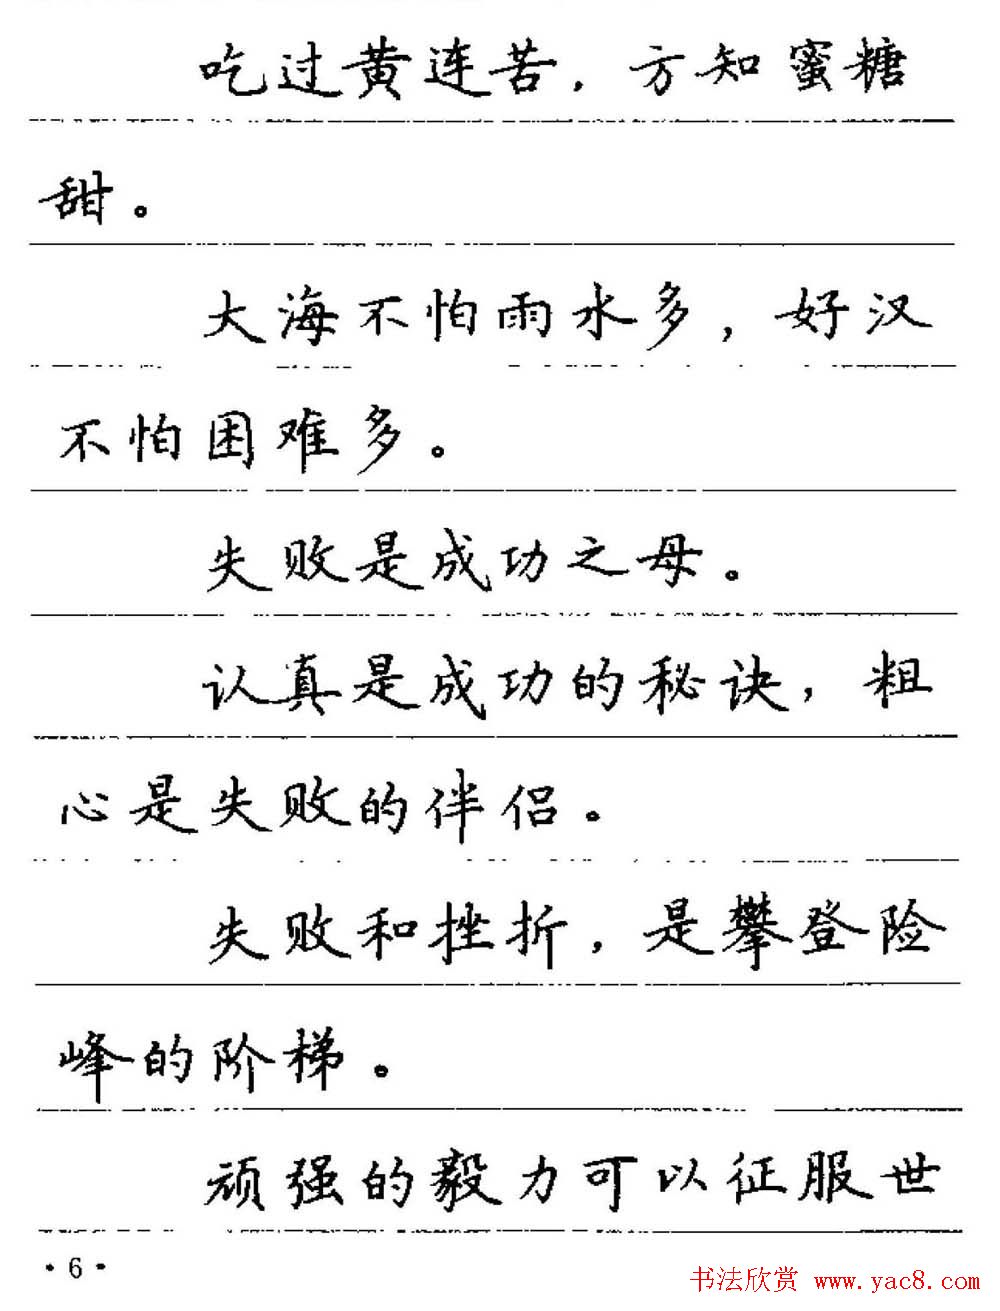 吃过黄连苦，方知蜜糖
甜。
大海不怕雨水多，好汉
不怕困难多。
失败是成功之母。
认真是成功的秘诀，粗
心是失败的伴侣。
失败和挫折，是攀登险
峰的阶梯。
顽强的毅力可以征服世
·6·
书法欣赏 www.yac8.com